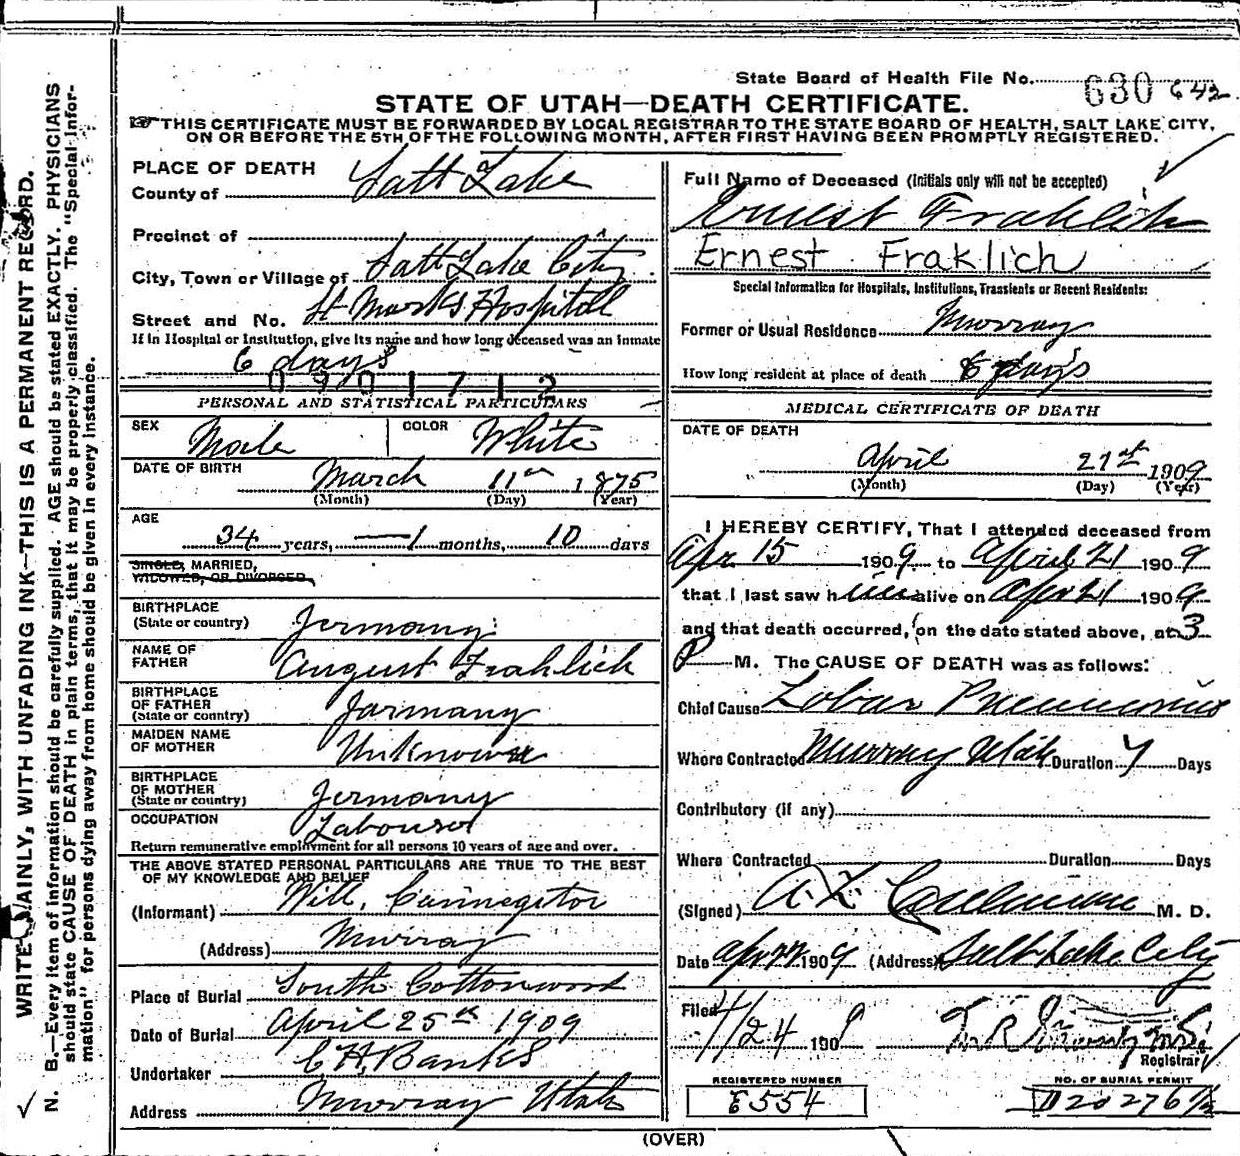 State Board of Health File No. 630 642
STATE OF UTAH—DEATH CERTIFICATE.
THIS CERTIFICATE MUST BE FORWARDED BY LOCAL REGISTRAR TO THE STATE BOARD OF HEALTH, SALT LAKE CITY,
ON OR BEFORE THE 5TH OF THE FOLLOWING MONTH, AFTER FIRST HAVING BEEN PROMPTLY REGISTERED.
WRITE PLAINLY, WITH UNFADING INK—THIS IS A PERMANENT RECORD.
N. B.—Every item of information should be carefully supplied. AGE should be stated EXACTLY. PHYSICIANS
should state CAUSE OF DEATH in plain terms, that it may be properly classified. The "Special Infor-
mation" for persons dying away from home should be given in every instance.
PLACE OF DEATH
County of Salt Lake
Precinct of
City, Town or Village of Salt Lake City
Street and No. St Marks Hospital
If in Hospital or Institution, give its name and how long deceased was an inmate
6 days
0901712
PERSONAL AND STATISTICAL PARTICULARS
SEX Male COLOR White
DATE OF BIRTH March 11th 1875
(Month) (Day) (Year)
AGE
34 years, 1 months, 10 days
SINGLE, MARRIED,
WIDOWED, OR DIVORCED
BIRTHPLACE
(State or country) Germany
NAME OF
FATHER August Frahlich
BIRTHPLACE
OF FATHER
(State or country) Jarmany
MAIDEN NAME
OF MOTHER Unknown
BIRTHPLACE
OF MOTHER
(State or country) Jermany
OCCUPATION Labourer
Return remunerative employment for all persons 10 years of age and over.
THE ABOVE STATED PERSONAL PARTICULARS ARE TRUE TO THE BEST
OF MY KNOWLEDGE AND BELIEF
(Informant) Will.
(Address) Murray
Place of Burial South Cottonwood
Date of Burial April 25th 1909
Undertaker C H, Banks
Address Murray Utah
Full Name of Deceased (Initials only will not be accepted)
Ernest Frahlich
Ernest Fraklich
Special Information for Hospitals, Institutions, Transients or Recent Residents:
Former or Usual Residence Murray
How long resident at place of death 6 days
MEDICAL CERTIFICATE OF DEATH
DATE OF DEATH
April 21st 1909
(Month) (Day) (Year)
I HEREBY CERTIFY, That I attended deceased from
Apr 15 1909 to April 21 1909
that I last saw him alive on Apr 21 1909
and that death occurred, on the date stated above, at 3
P M. The CAUSE OF DEATH was as follows:
Chief Cause Lobar Pneumonia
Where Contracted Murray Utah Duration 7 Days
Contributory (if any)
Where Contracted Duration Days
(Signed) M. D.
Date Apr 22 1909 (Address) Salt Lake City
Filed 4/24 1909
Registrar
REGISTERED NUMBER
E554
NO. OF BURIAL PERMIT
D20276½
(OVER)